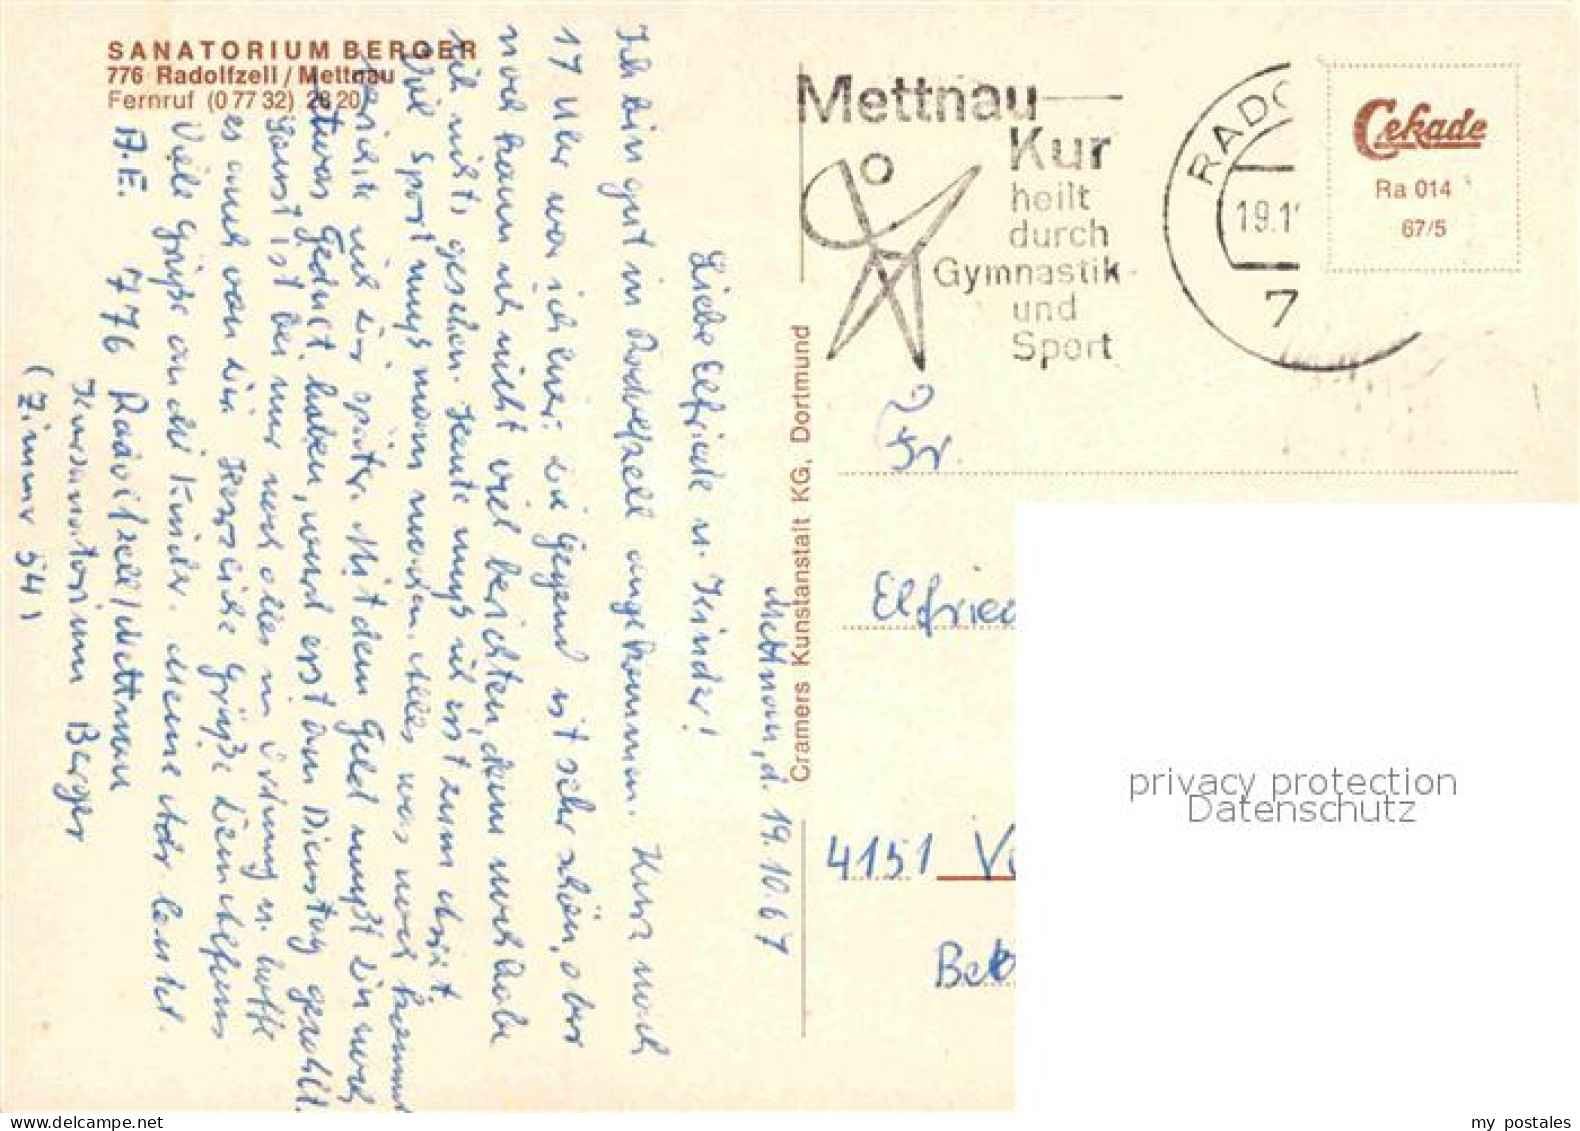 SANATORIUM BERGER
776 Radolfzell / Mettnau
Fernruf (0 77 32) 28 20
Mettnau, d. 19.10.67
Liebe Elfriede u. Kinder!
Ich bin gut in Radolfzell angekommen. Kurz nach
17 Uhr war ich hier. Die Gegend ist sehr schön, aber
noch kann ich nicht viel berichten, denn noch habe
ich nichts gesehen. Heute muß ich erst zum Arzt.
Viel Sport muß man machen. Alles was noch kommt
berichte ich Dir später. Mit dem Geld mußt Du noch
etwas Geduld haben, wird erst am Dienstag gezahlt.
Sonst ist bei mir noch alles in Ordnung u. hoffe
es auch von Dir. Herzliche Grüße Dein Alfons
Viele Grüße an die Kinder. Meine Adr. lautet.
A.E. 776 Radolfzell/Mettnau
Kursanatorium Berger
(Zimmer 54)
Cramers Kunstanstalt KG, Dortmund
Mettnau
Kur
heilt
durch
Gymnastik
und
Sport
RADO
19.1
7
Cekade
Ra 014
67/5
Fr.
Elfried
4151
Bek
privacy protection
Datenschutz
my postales
www.delcampe.net